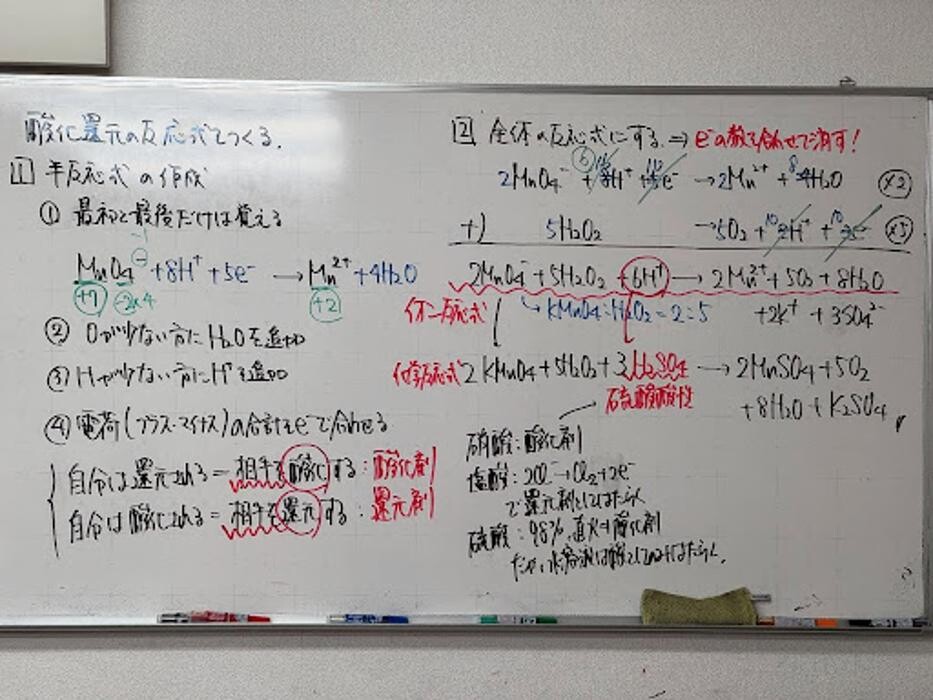 酸化還元の反応式をつくる。
1 半反応式の作成
① 最初と最後だけは覚える
MnO4⁻ +8H⁺ +5e⁻ → Mn²⁺ +4H2O
+7 -2×4 +2
② Oが少ない方にH2Oを追加
③ Hが少ない方にH⁺を追加
④ 電荷(プラス・マイナス)の合計をe⁻で合わせる
自分は還元される = 相手を酸化する : 酸化剤
自分は酸化される = 相手を還元する : 還元剤
2 全体の反応式にする ⇒ e⁻の数を合わせて消す!
6
2MnO4⁻ + 16 8H⁺ + 10 5e⁻ → 2Mn²⁺ + 8 4H2O ×2
+) 5H2O2 → 5O2 + 10 2H⁺ + 10 2e⁻ ×5
2MnO4⁻ + 5H2O2 + 6H⁺ → 2Mn²⁺ + 5O2 + 8H2O
イオン反応式 KMnO4:H2O2 = 2:5 +2K⁺ + 3SO4²⁻
化学反応式 2KMnO4 + 5H2O2 + 3H2SO4 → 2MnSO4 + 5O2
硫酸酸性 +8H2O + K2SO4
硝酸:酸化剤
塩酸:2Cl⁻→Cl2+2e⁻
で還元剤としてはたらく
硫酸:98%,直火は酸化剤
だが水溶液は酸としてのみはたらく.